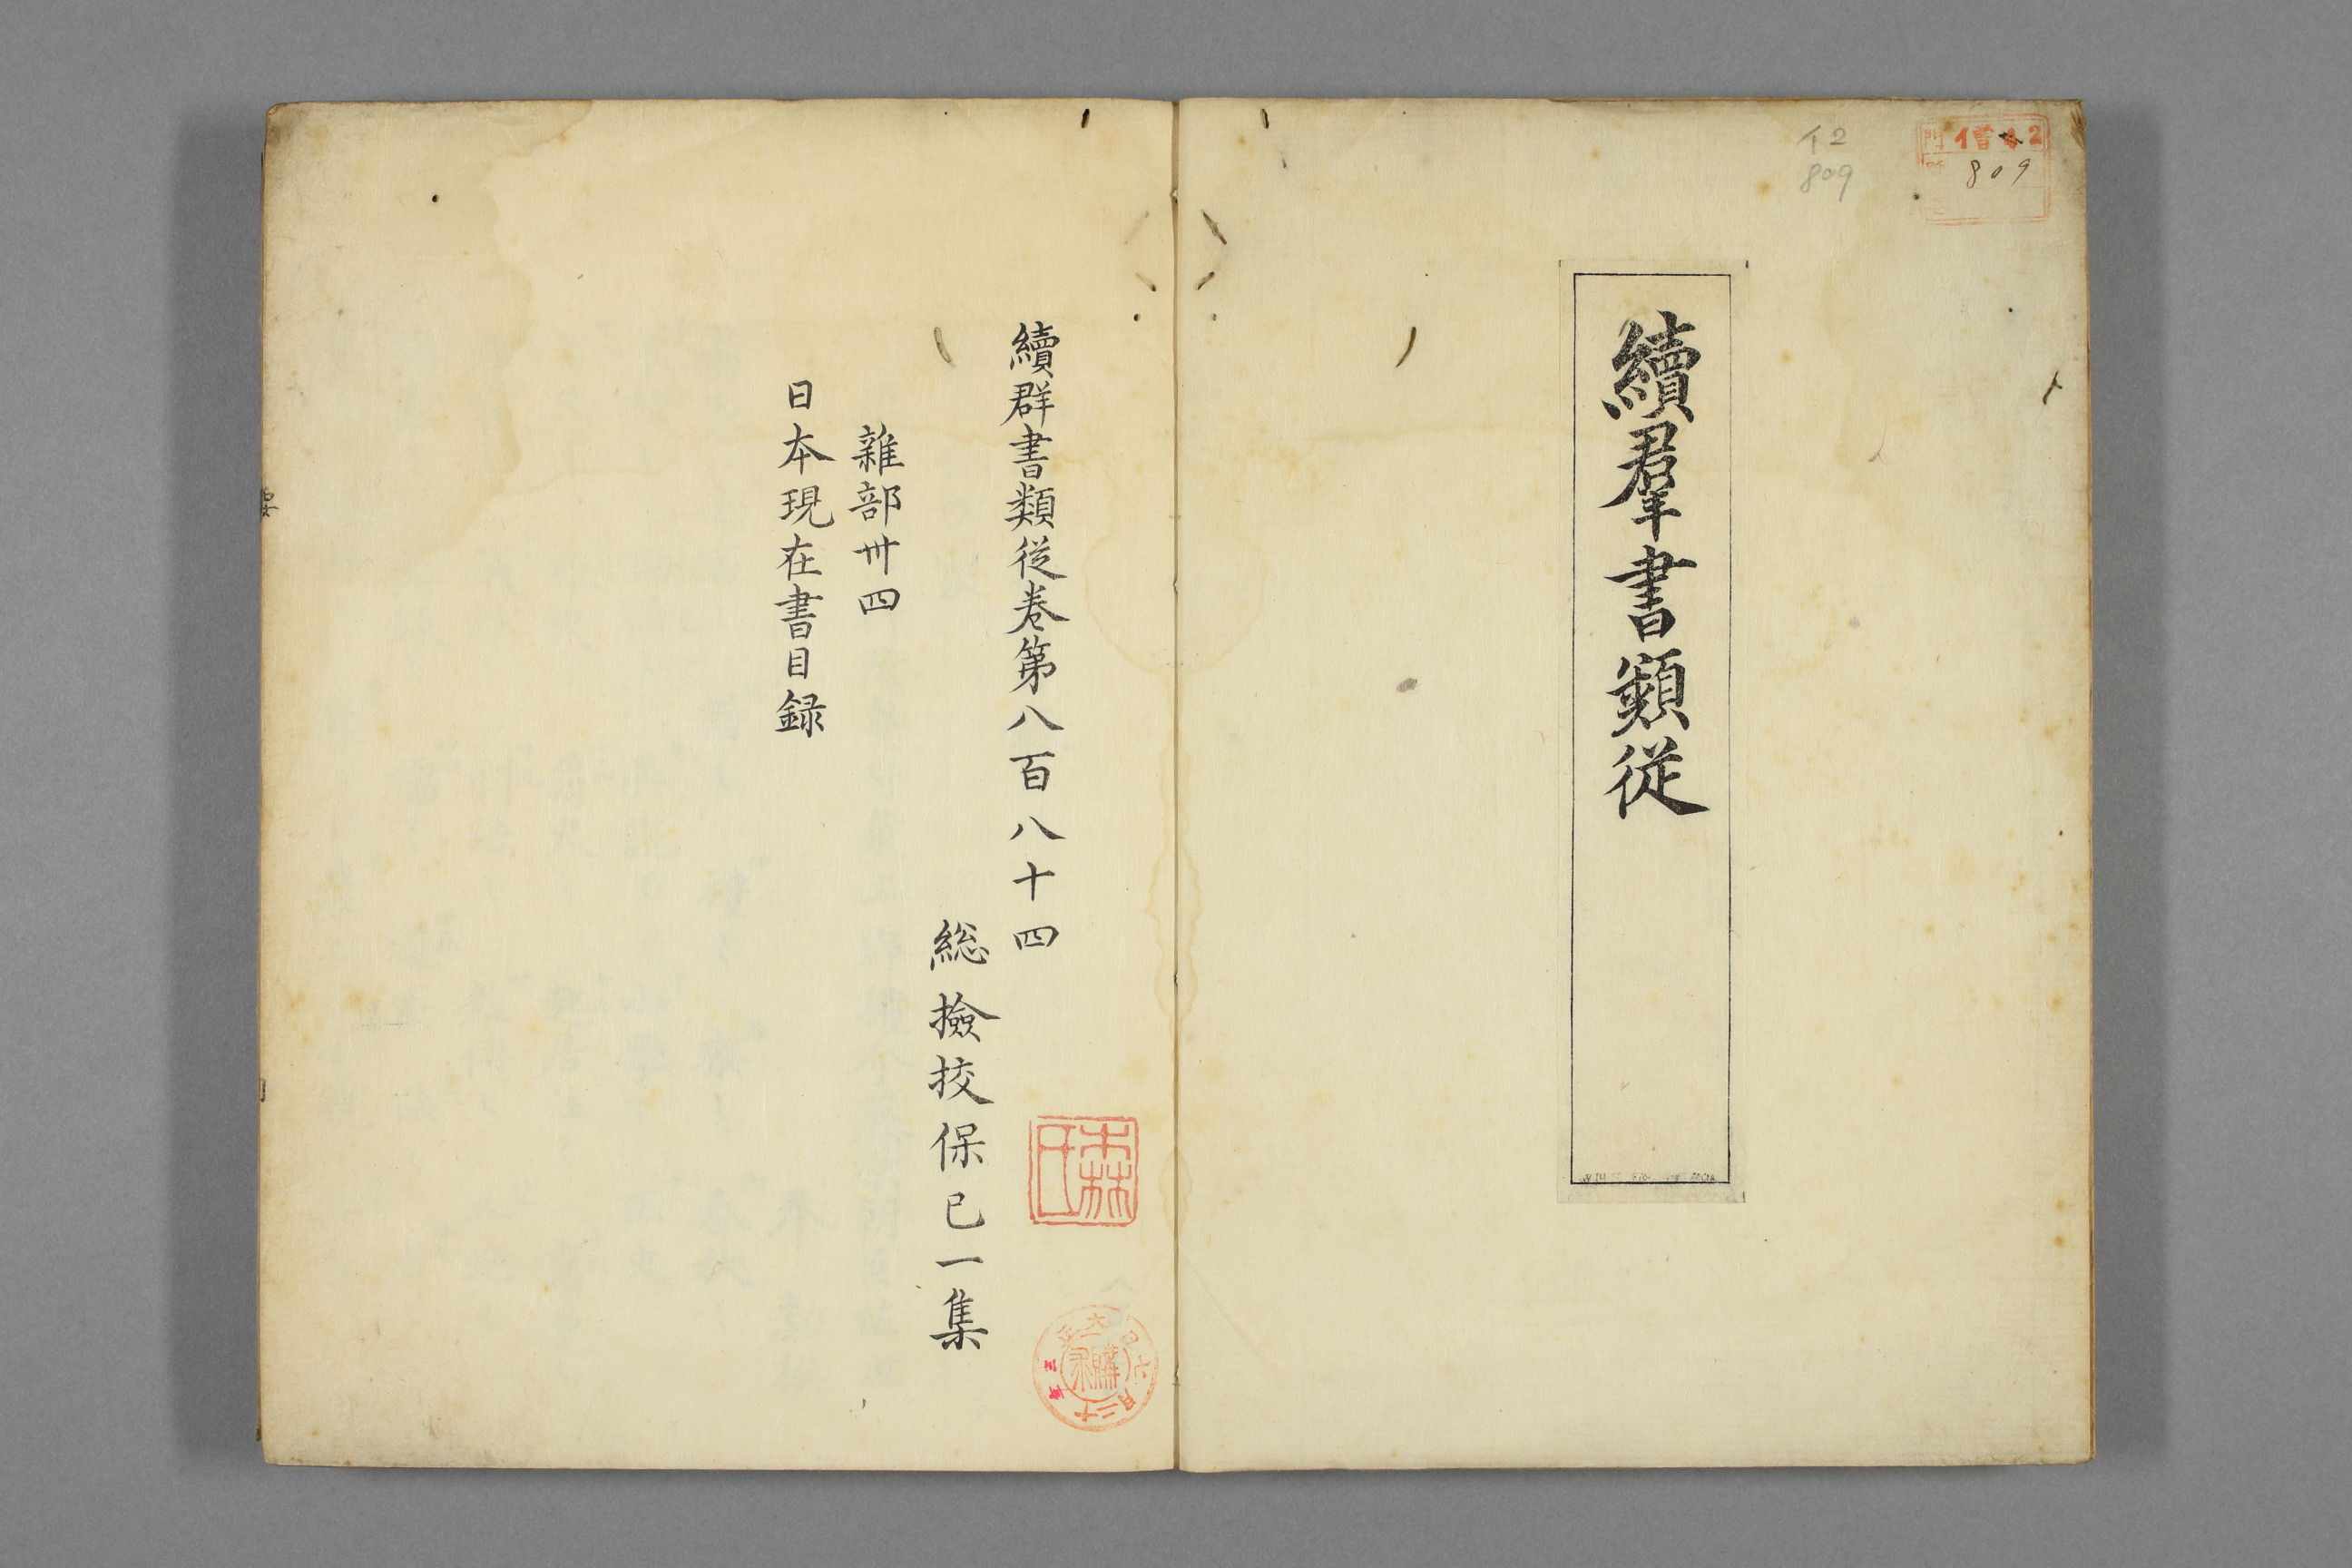 イ2
809
門
2
809
續羣書類従
續群書類従巻第八百八十四
総撿挍保己一集
雜部卅四
日本現在書目録
森氏
購求